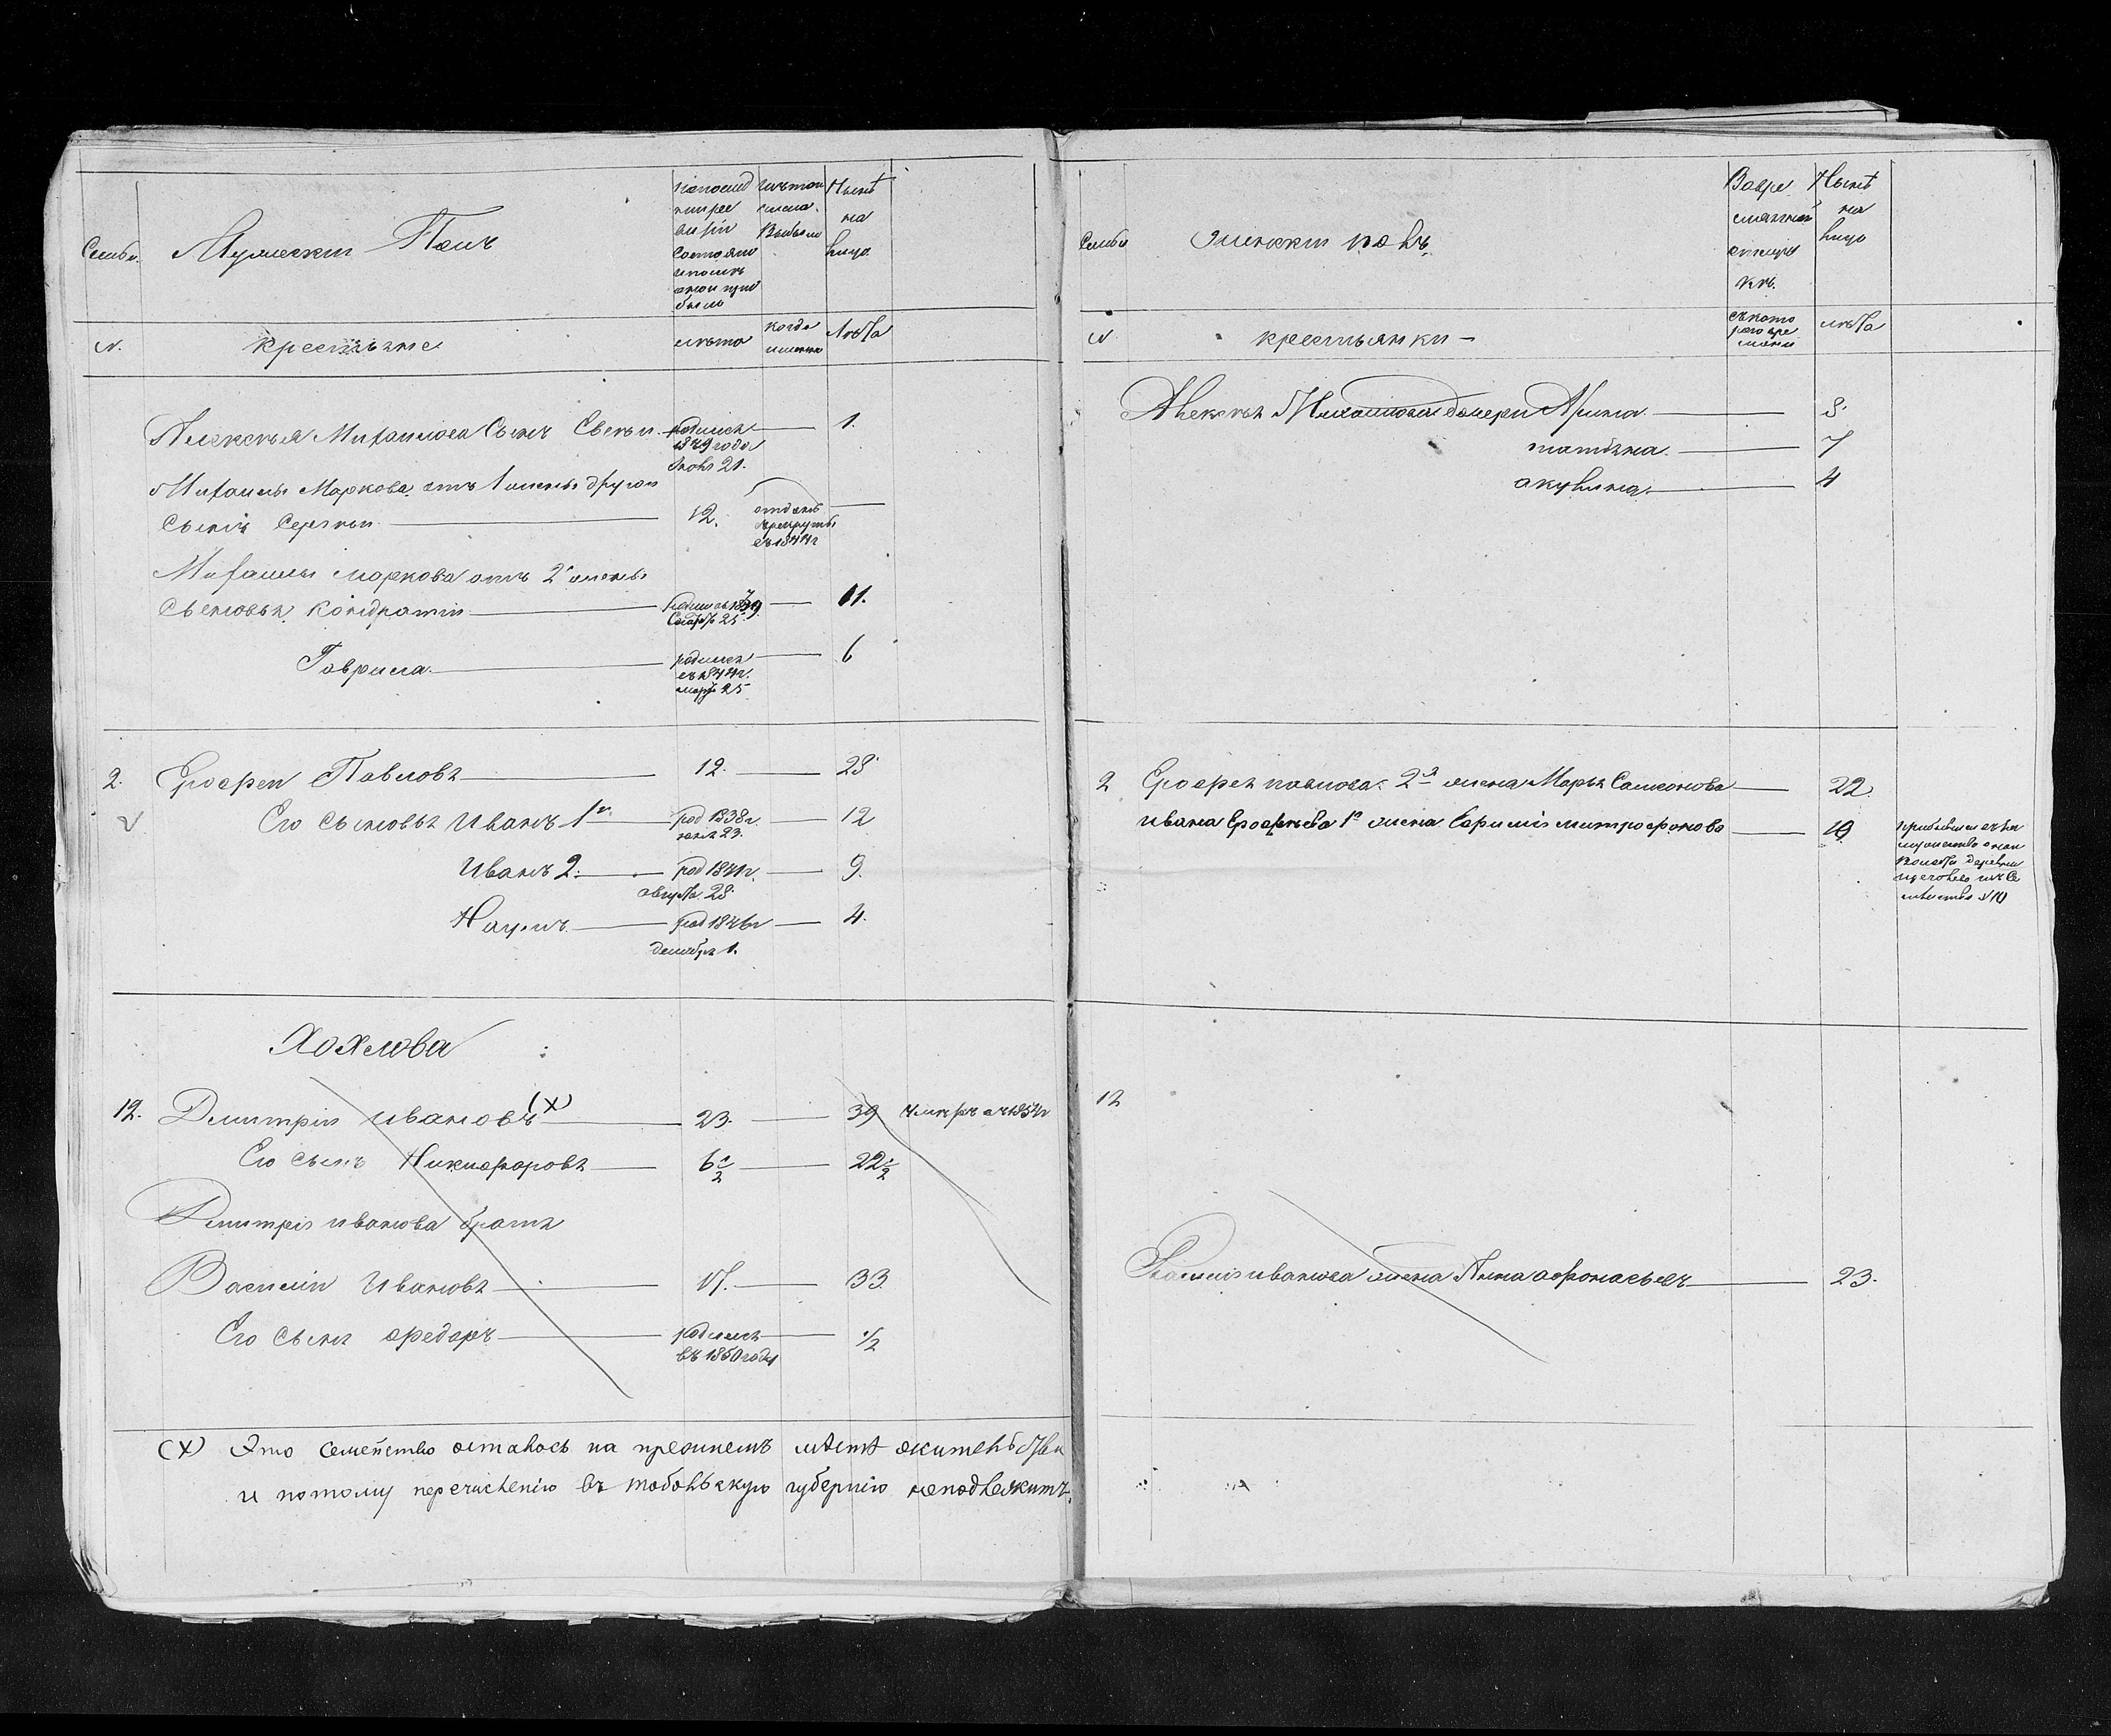 Семьи.
Мужеский Полъ
По последней ревизіи состояло и после оной прибыло
Изъ того числа выбыло
Ныне на лицо
№.
Крестьяне
лѣта
когда именно
Лѣта
Алексѣя Михайлова Сынъ Евсей родился 1849 года 21. 1.
Михайлы Маркова отъ 1 жены другой
Сынъ Сергей 12. отданъ въ рекруты въ 1844г
Михайлы Маркова отъ 2й жены
Сыновья Кондратій родился 1839 25 11.
Гаврила родился въ 1844г. мар. 25 6
2. Ерофей Павловъ 12. 28
Его Сыновья Иванъ 1й род 1838г 23. 12
Иванъ 2. род 1841г. августа 28 9.
Наумъ род 1846г декабря 1. 4.
Хохлова
12. Дмитрій Ивановъ (X) 23. 39 умеръ въ 1852г
Его Сынъ Никифоровъ 6 1/2 22 1/2
Дмитрія Иванова братъ
Василій Ивановъ 17. 33
Его Сынъ Федоръ родился въ 1850 года 1/2
(X) Это семейство осталось на прежнемъ мѣстѣ жительства
и потому перечисленію въ тобольскую губернію неподлежитъ.
Семьи
Женскій полъ
Во временной отлучкѣ.
Ныне на лицо
№
крестьянки
съ котораго времени
лѣта
Алексѣя Михайлова дочери Арина 8
татьяна. 7
акулина. 4
2 Ерофея павлова 2я жена Марья Самсонова 22
ивана Ерофѣева 1го жена Василиса митрофонова 19
12
Василія иванова жена Анна афонасьева 23.